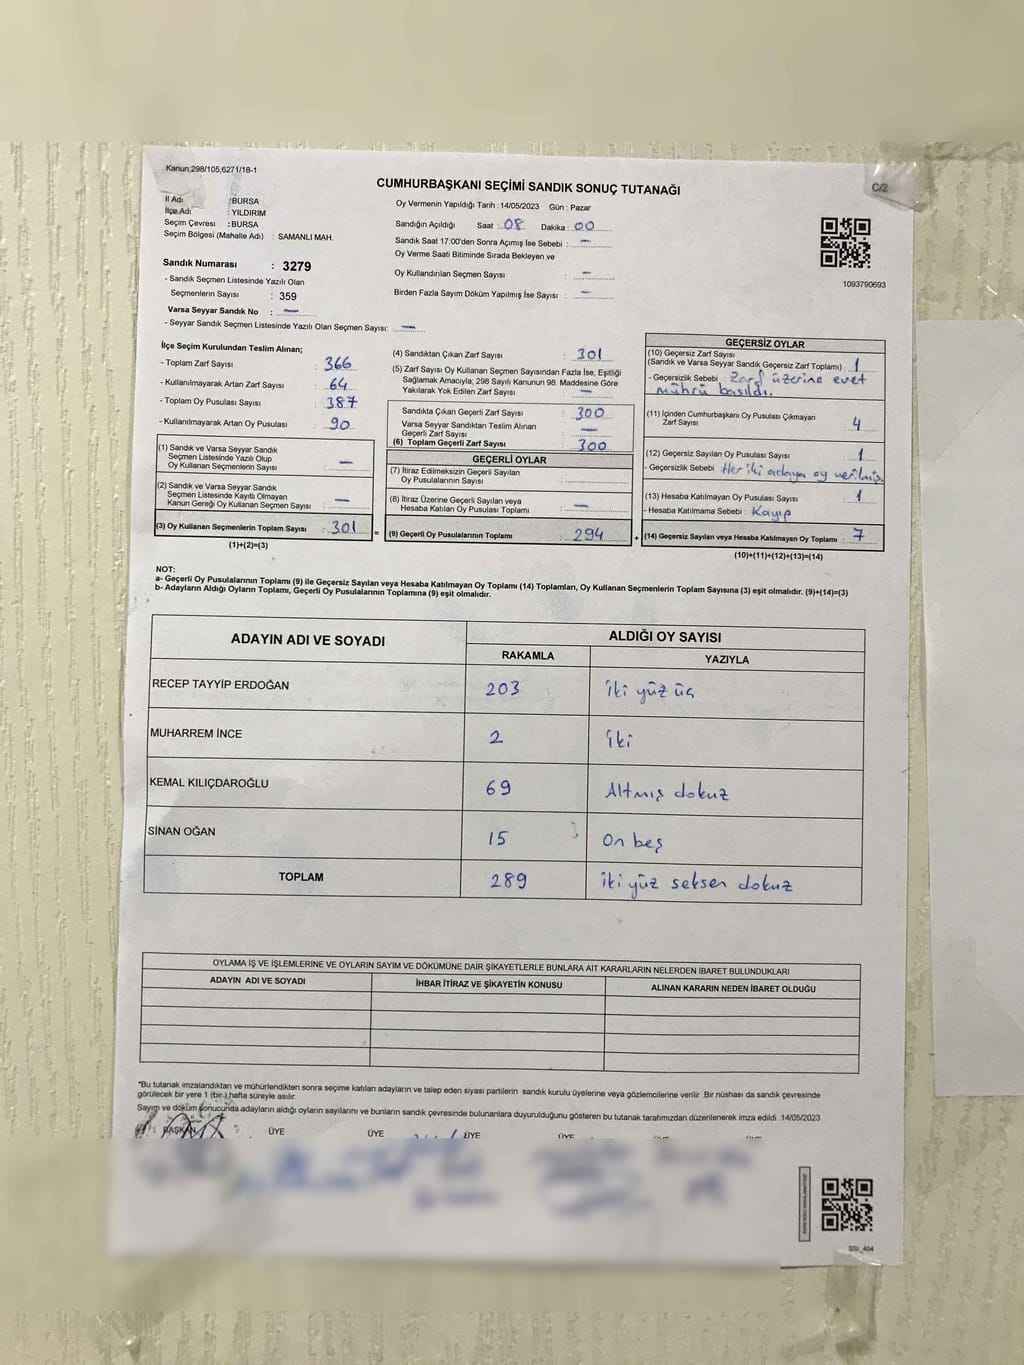 Kanun;298/105,6271/18-1
CUMHURBAŞKANI SEÇİMİ SANDIK SONUÇ TUTANAĞI
C/2
İl Adı : BURSA
İlçe Adı : YILDIRIM
Seçim Çevresi : BURSA
Seçim Bölgesi (Mahalle Adı) : SAMANLI MAH.
Sandık Numarası : 3279
- Sandık Seçmen Listesinde Yazılı Olan
Seçmenlerin Sayısı : 359
Varsa Seyyar Sandık No : —
- Seyyar Sandık Seçmen Listesinde Yazılı Olan Seçmen Sayısı: —
Oy Vermenin Yapıldığı Tarih : 14/05/2023 Gün : Pazar
Sandığın Açıldığı Saat : 08 Dakika : 00
Sandık Saat 17:00'den Sonra Açımış İse Sebebi : —
Oy Verme Saati Bitiminde Sırada Bekleyen ve
Oy Kullandırılan Seçmen Sayısı : —
Birden Fazla Sayım Döküm Yapılmış İse Sayısı : —
1093790693
İlçe Seçim Kurulundan Teslim Alınan;
- Toplam Zarf Sayısı : 366
- Kullanılmayarak Artan Zarf Sayısı : 64
- Toplam Oy Pusulası Sayısı : 387
- Kullanılmayarak Artan Oy Pusulası : 90
(1) Sandık ve Varsa Seyyar Sandık
Seçmen Listesinde Yazılı Olup
Oy Kullanan Seçmenlerin Sayısı : —
(2) Sandık ve Varsa Seyyar Sandık
Seçmen Listesinde Kayıtlı Olmayan
Kanun Gereği Oy Kullanan Seçmen Sayısı : —
(3) Oy Kullanan Seçmenlerin Toplam Sayısı : 301
(1)+(2)=(3)
(4) Sandıktan Çıkan Zarf Sayısı : 301
(5) Zarf Sayısı Oy Kullanan Seçmen Sayısından Fazla İse, Eşitliği
Sağlamak Amacıyla; 298 Sayılı Kanunun 98. Maddesine Göre
Yakılarak Yok Edilen Zarf Sayısı : —
Sandıkta Çıkan Geçerli Zarf Sayısı : 300
Varsa Seyyar Sandıktan Teslim Alınan
Geçerli Zarf Sayısı : —
(6) Toplam Geçerli Zarf Sayısı : 300
GEÇERLİ OYLAR
(7) İtiraz Edilmeksizin Geçerli Sayılan
Oy Pusulalarının Sayısı :
(8) İtiraz Üzerine Geçerli Sayılan veya
Hesaba Katılan Oy Pusulası Toplamı : —
= (9) Geçerli Oy Pusulalarının Toplamı : 294
GEÇERSİZ OYLAR
(10) Geçersiz Zarf Sayısı
(Sandık ve Varsa Seyyar Sandık Geçersiz Zarf Toplamı) : 1
- Geçersizlik Sebebi : Zarf üzerine evet
mührü basıldı.
(11) İçinden Cumhurbaşkanı Oy Pusulası Çıkmayan
Zarf Sayısı : 4
(12) Geçersiz Sayılan Oy Pusulası Sayısı : 1
- Geçersizlik Sebebi : Her iki adaya oy verilmiş
(13) Hesaba Katılmayan Oy Pusulası Sayısı : 1
- Hesaba Katılmama Sebebi : Kayıp
+ (14) Geçersiz Sayılan veya Hesaba Katılmayan Oy Toplamı : 7
(10)+(11)+(12)+(13)=(14)
NOT:
a- Geçerli Oy Pusulalarının Toplamı (9) ile Geçersiz Sayılan veya Hesaba Katılmayan Oy Toplamı (14) Toplamları, Oy Kullanan Seçmenlerin Toplam Sayısına (3) eşit olmalıdır. (9)+(14)=(3)
b- Adayların Aldığı Oyların Toplamı, Geçerli Oy Pusulalarının Toplamına (9) eşit olmalıdır.
ADAYIN ADI VE SOYADI ALDIĞI OY SAYISI
RAKAMLA YAZIYLA
RECEP TAYYİP ERDOĞAN 203 İki yüz üç
MUHARREM İNCE 2 İki
KEMAL KILIÇDAROĞLU 69 Altmış dokuz
SİNAN OĞAN 15 On beş
TOPLAM 289 İki yüz seksen dokuz
OYLAMA İŞ VE İŞLEMLERİNE VE OYLARIN SAYIM VE DÖKÜMÜNE DAİR ŞİKAYETLERLE BUNLARA AİT KARARLARIN NELERDEN İBARET BULUNDUKLARI
ADAYIN ADI VE SOYADI İHBAR İTİRAZ VE ŞİKAYETİN KONUSU ALINAN KARARIN NEDEN İBARET OLDUĞU
"Bu tutanak imzalandıktan ve mühürlendikten sonra seçime katılan adayların ve talep eden siyasi partilerin sandık kurulu üyelerine veya gözlemcilerine verilir. Bir nüshası da sandık çevresinde
görülecek bir yere 1 (bir ) hafta süreyle asılır.
Sayım ve döküm sonucunda adayların aldığı oyların sayılarını ve bunların sandık çevresinde bulunanlara duyurulduğunu gösteren bu tutanak tarafımızdan düzenlenerek imza edildi. 14/05/2023
BAŞKAN ÜYE ÜYE ÜYE ÜYE
SSI_404